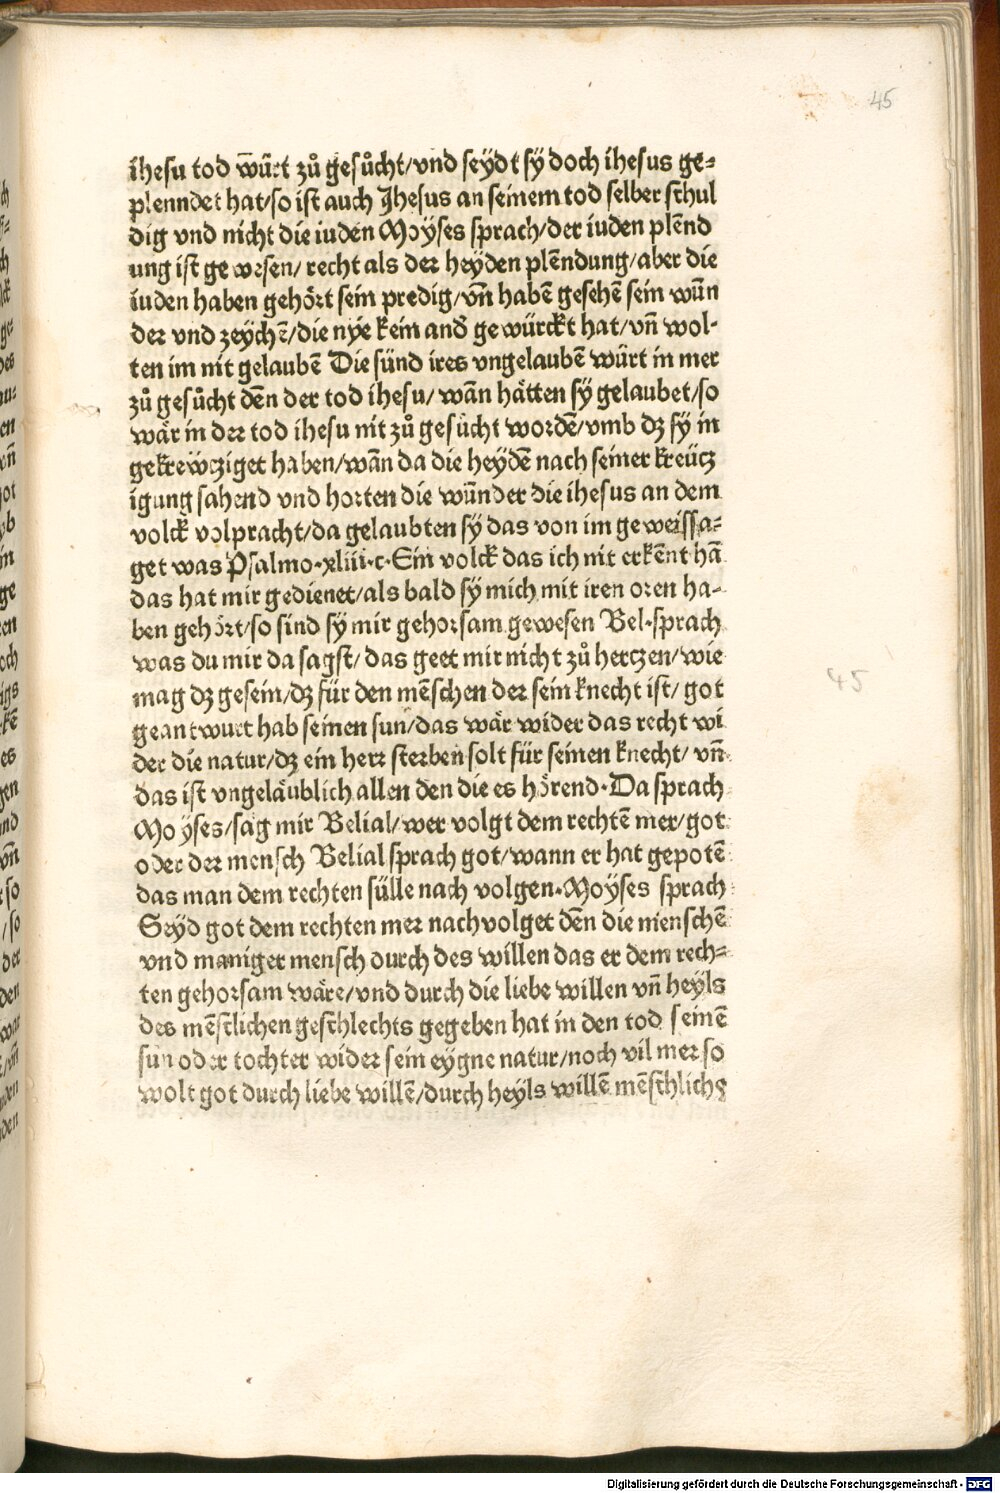 45
ihesu tod wūrt zů gesůcht/vnd seÿdt sÿ doch ihesus ge-
plenndet hat/so ist auch Jhesus an seinem tod selber schul
dig vnd nicht die iuden Moÿses sprach/der iuden plēnd
ung ist gewesen/recht als der heÿden plēndung/aber die
iuden haben gehört sein predig/vn̄ habē gesehē sein wūn
der vnd zeÿchē/die nÿe kein and̄ gewürckt hat/vn̄ wol-
ten im nit gelaubē Die sünd ires vngelaubē würt in mer
zů gesůcht dēn der tod ihesu/wān hätten sÿ gelaubet/so
wär in der tod ihesu nit zů gesůcht wordē/vmb dz sÿ in
gekreẅcziget haben/wān da die heÿdē nach seiner kreücz
igung sahend vnd horten die wūnder die ihesus an dem
volck volpracht/da gelaubten sÿ das von im geweissa-
get was Psalmo·xliii·c·Ein volck das ich nit erkēnt hā
das hat mir gedienet/als bald sÿ mich mit iren oren ha-
ben gehört/so sind sÿ mir gehorsam gewesen Bel·sprach
was du mir da sagst/das geet mir nicht zů hertzen/wie
mag dz gesein/dz für den mēschen der sein knecht ist/got
geantwurt hab seinen sun/das wär wider das recht wi
der die natur/dz ein herr sterben solt für seinen knecht/vn̄
das ist vngeläublich allen den die es hörend·Da sprach
Moÿses/sag mir Belial/wer volgt dem rechtē mer/got
oder der mensch Belial sprach got/wann er hat gepotē
das man dem rechten sülle nach volgen·Moÿses sprach
Seÿd got dem rechten mer nachvolget dēn die menschē
vnd maniger mensch durch des willen das er dem rech-
ten gehorsam wäre/vnd durch die liebe willen vn̄ heÿls
des mēschlichen geschlechts gegeben hat in den tod seinē
sun oder tochter wider sein eÿgne natur/noch vil mer so
wolt got durch liebe willē/durch heÿls willē mēschlichs
45
Digitalisierung gefördert durch die Deutsche Forschungsgemeinschaft - DFG